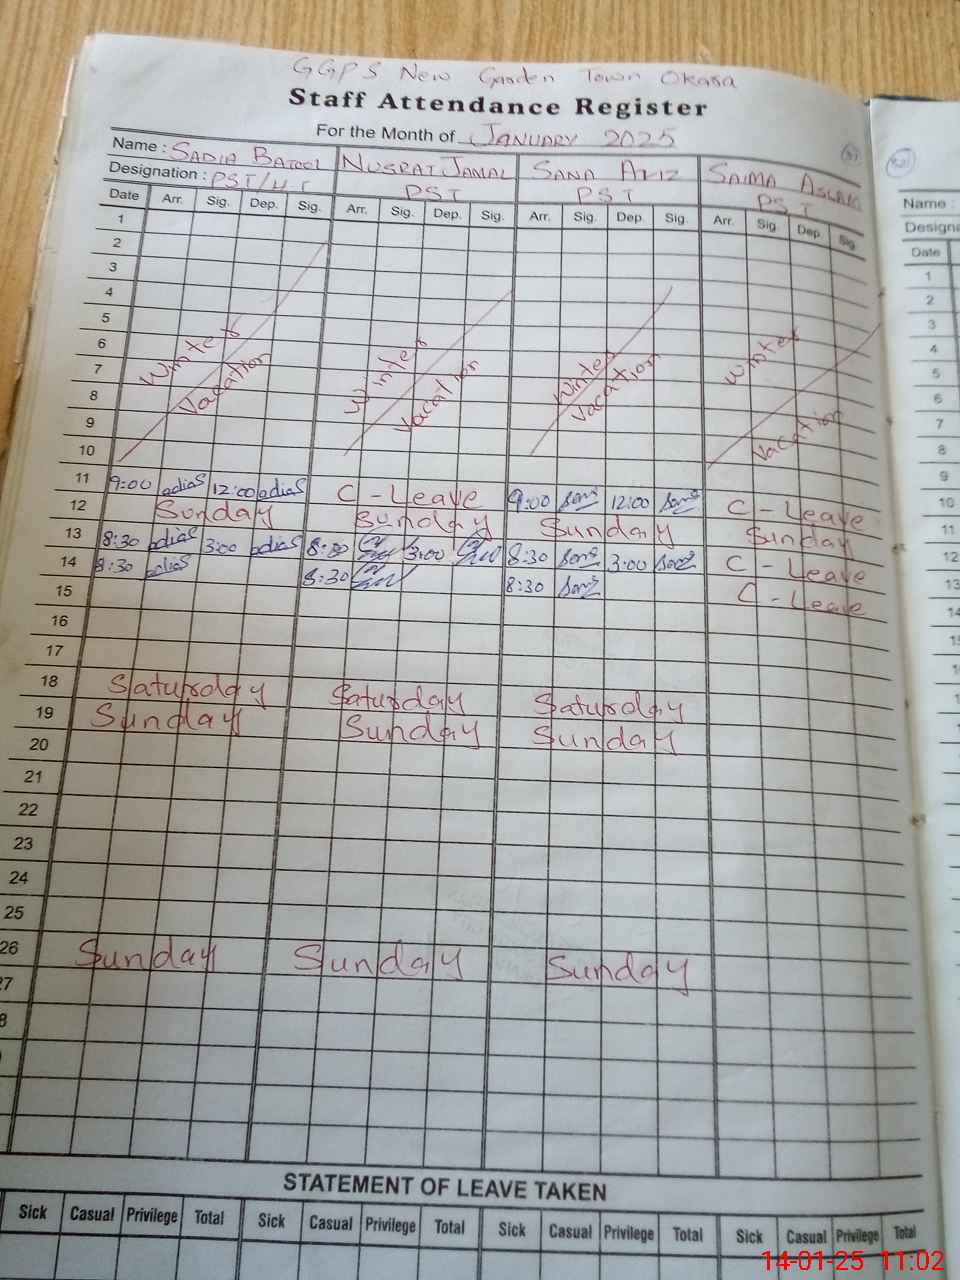 GGPS New Garden Town Okara
Staff Attendance Register
For the Month of JANUARY 2025
Name : SADIA BATOOL NUSRAT JAMAL SANA AZIZ SAIMA ASLAM
Designation : PST/H.T PST PST PST
Date Arr. Sig. Dep. Sig. Arr. Sig. Dep. Sig. Arr. Sig. Dep. Sig. Arr. Sig. Dep. Sig.
1
2
3
4
5
6
7 Winter Winter Winter Winter
8 Vacation Vacation Vacation Vacation
9
10
11 9:00 12:00 C-Leave 9:00 12:00 C-Leave
12 Sunday Sunday Sunday Sunday
13 8:30 3:00 8:00 3:00 8:30 3:00 C-Leave
14 8:30 8:30 8:30 C-Leave
15
16
17
18 Saturday Saturday Saturday
19 Sunday Sunday Sunday
20
21
22
23
24
25
26 Sunday Sunday Sunday
27
8
STATEMENT OF LEAVE TAKEN
Sick Casual Privilege Total Sick Casual Privilege Total Sick Casual Privilege Total Sick Casual Privilege Total
Name :
Designa
Date
1
2
3
4
5
6
7
8
9
10
11
12
13
14
14-01-25 11:02